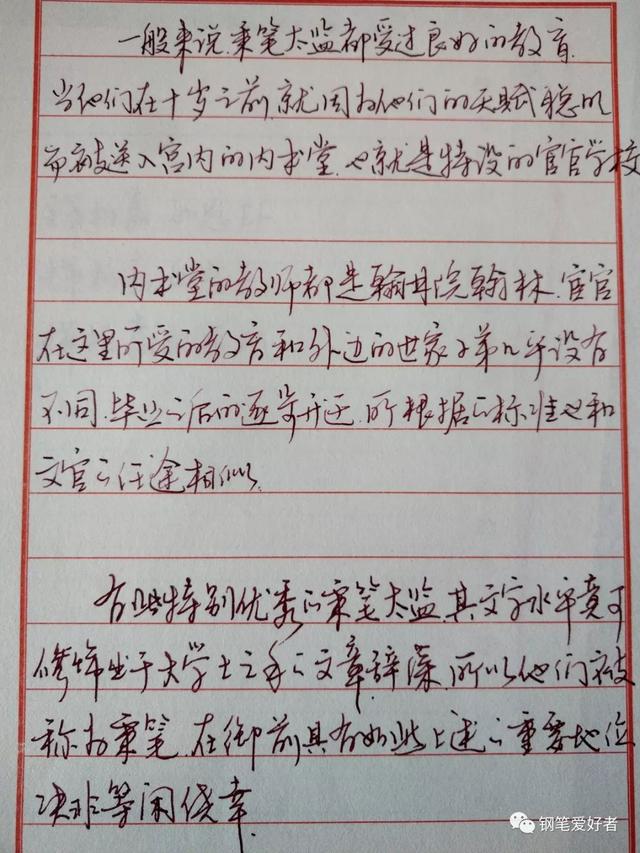 一般来说,秉笔太监都受过良好的教育.
当他们在十岁之前,就因为他们的天赋聪明
而被送入宫内的内书堂.也就是特设的宦官学校
内书堂的教师都是翰林院翰林.宦官
在这里所受的教育和外边的世家子弟几乎没有
不同.毕业之后的逐步升迁,所根据之标准也和
文官之仕途相似.
有些特别优秀之秉笔太监,其文字水平竟可
修饰出于大学士之手之文章辞藻.所以他们被
称为秉笔.在御前具有如此上述之重要地位
决非等闲侥幸.
钢笔爱好者